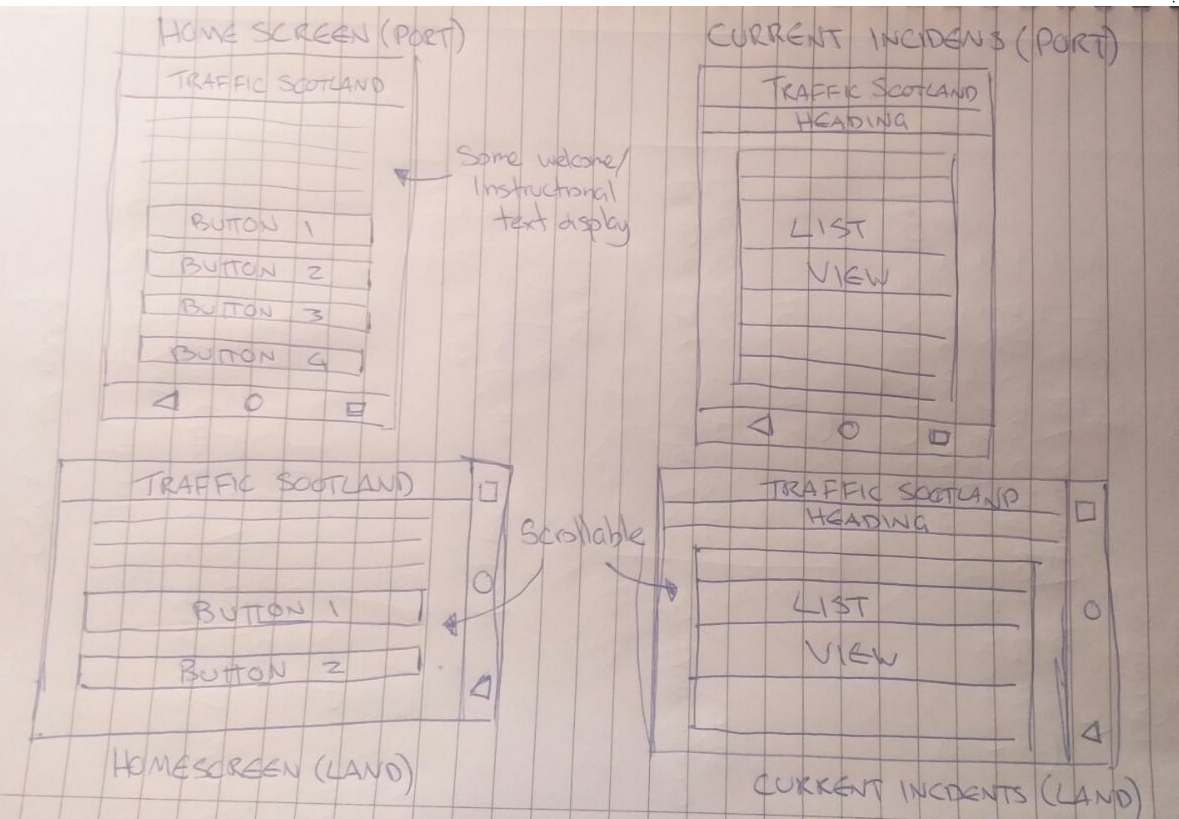 HOME SCREEN (PORT)
TRAFFIC SCOTLAND
Some welcome/
Instructional
text display
BUTTON 1
BUTTON 2
BUTTON 3
BUTTON 4
CURRENT INCIDENS (PORT)
TRAFFIC SCOTLAND
HEADING
LIST
VIEW
TRAFFIC SCOTLAND
BUTTON 1
BUTTON 2
HOMESCREEN (LAND)
Scrollable
TRAFFIC SCOTLAND
HEADING
LIST
VIEW
CURRENT INCIDENTS (LAND)